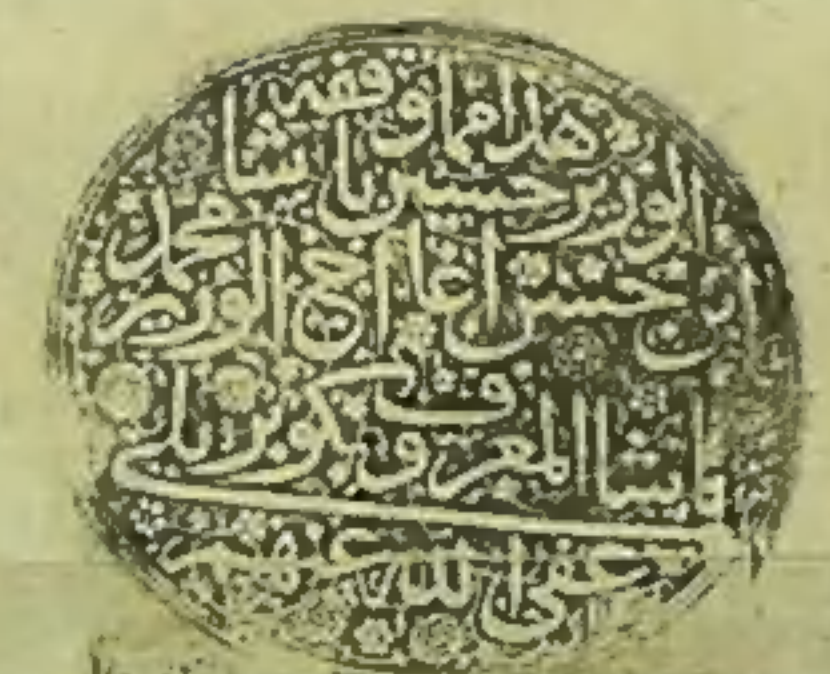 هذا مما وقفه
الوزير حسين باشا
ابن حسن اغا اخ الوزير محمد
پاشا المعروف بكوبريلي
عفى الله عنهم